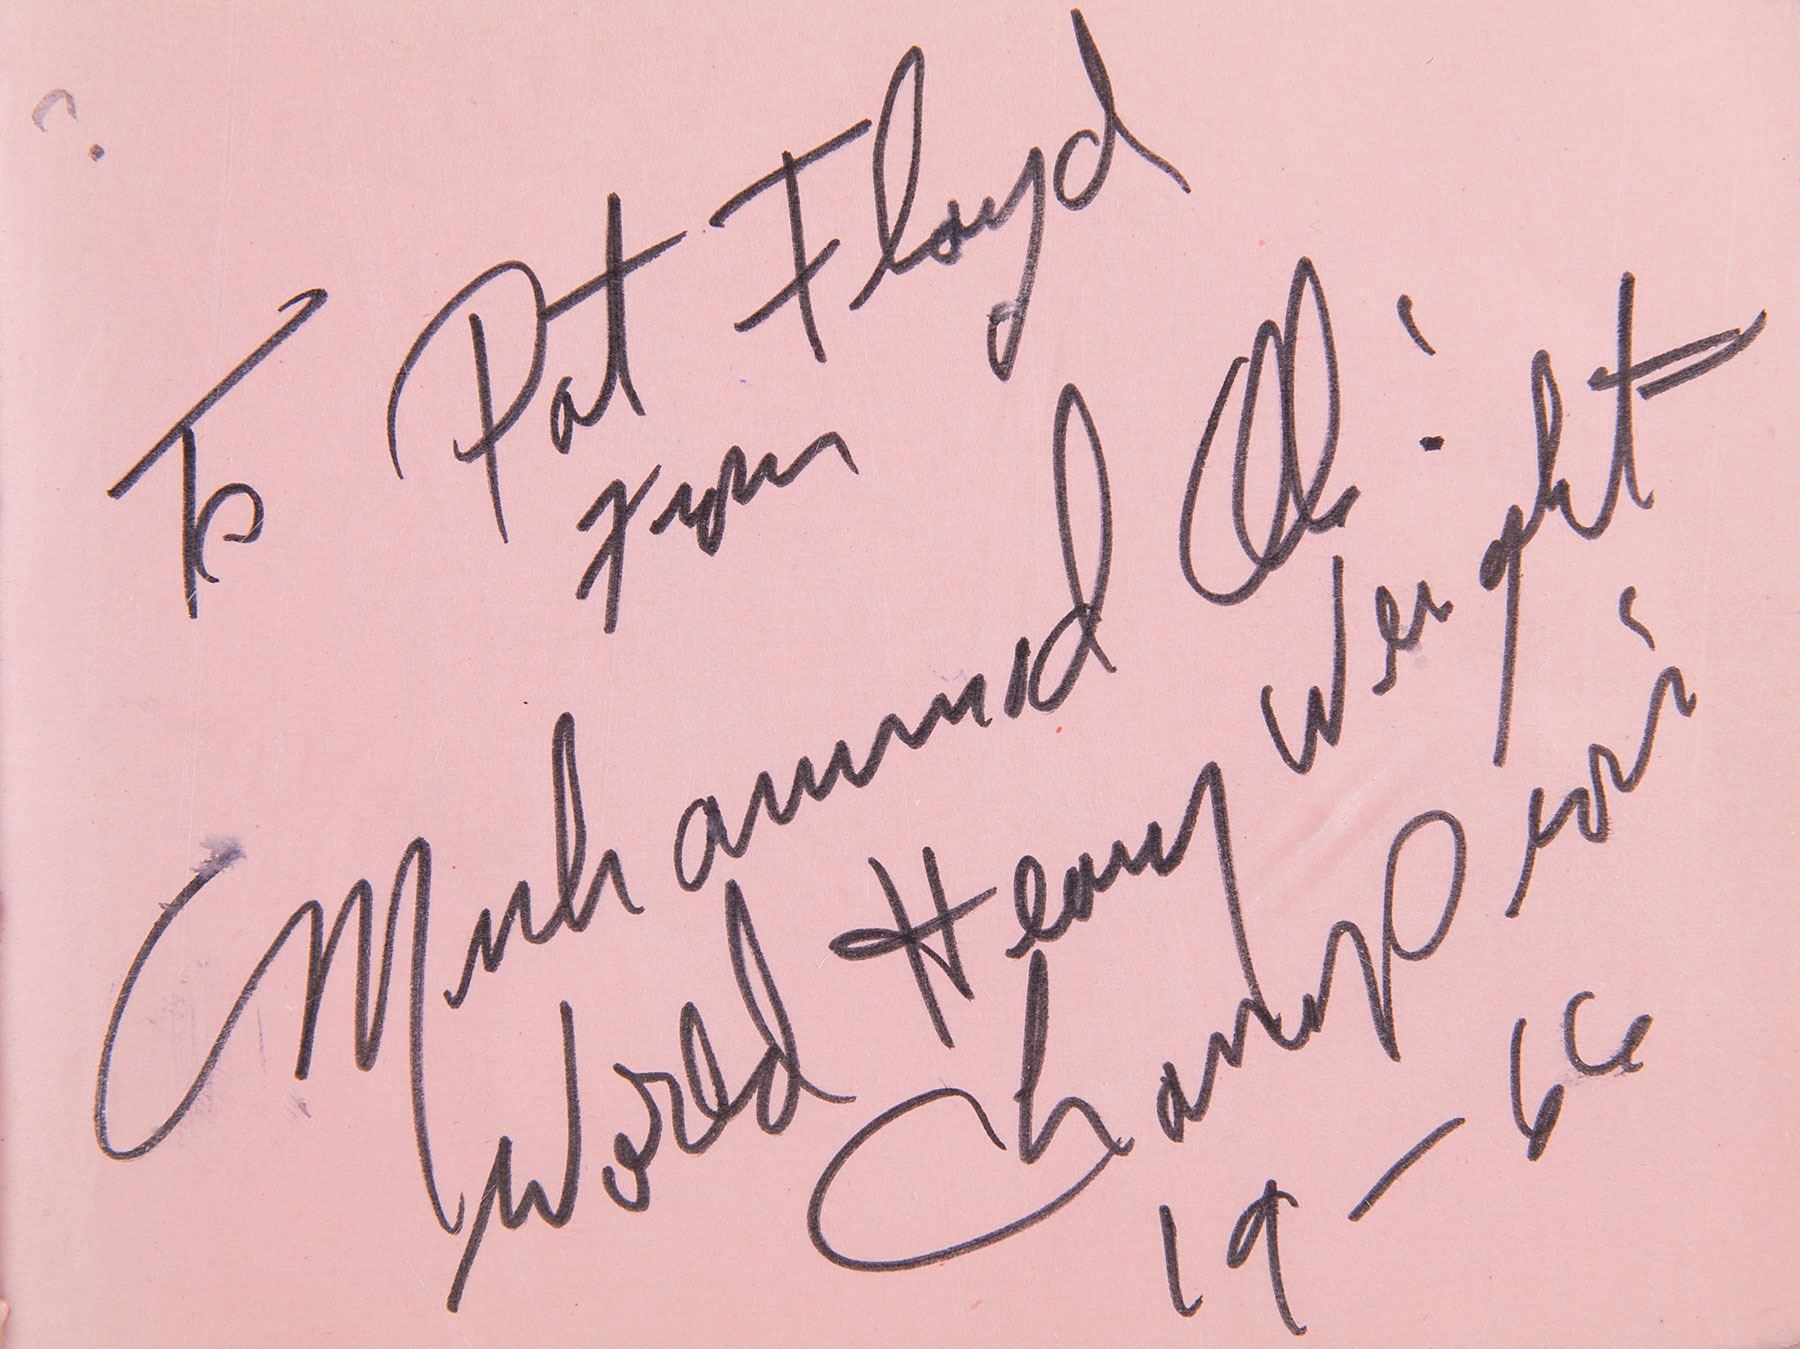 To Pat Floyd
From
Muhammad Ali
World Heavy Weight
Champion
19-66